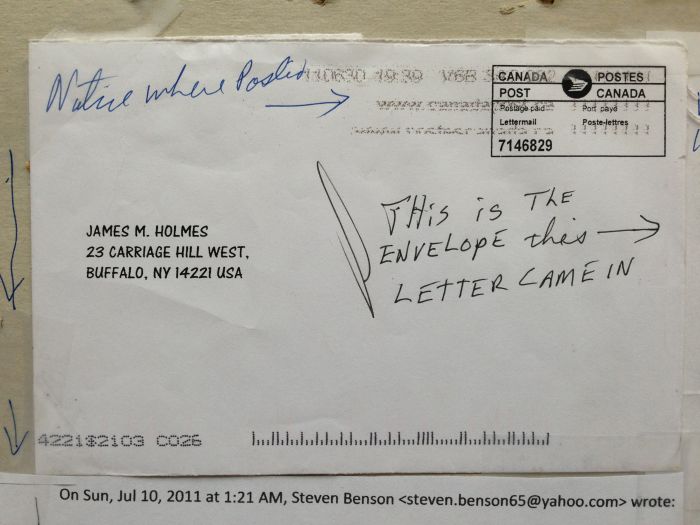 Notice where Posted
110630 19:39 V6B
CANADA POSTES
POST CANADA
Postage paid Port payé
Lettermail Poste-lettres
7146829
THis is THE
ENVELOPE this
LETTER CAME IN
JAMES M. HOLMES
23 CARRIAGE HILL WEST,
BUFFALO, NY 14221 USA
4221$2103 C026
On Sun, Jul 10, 2011 at 1:21 AM, Steven Benson <steven.benson65@yahoo.com> wrote: